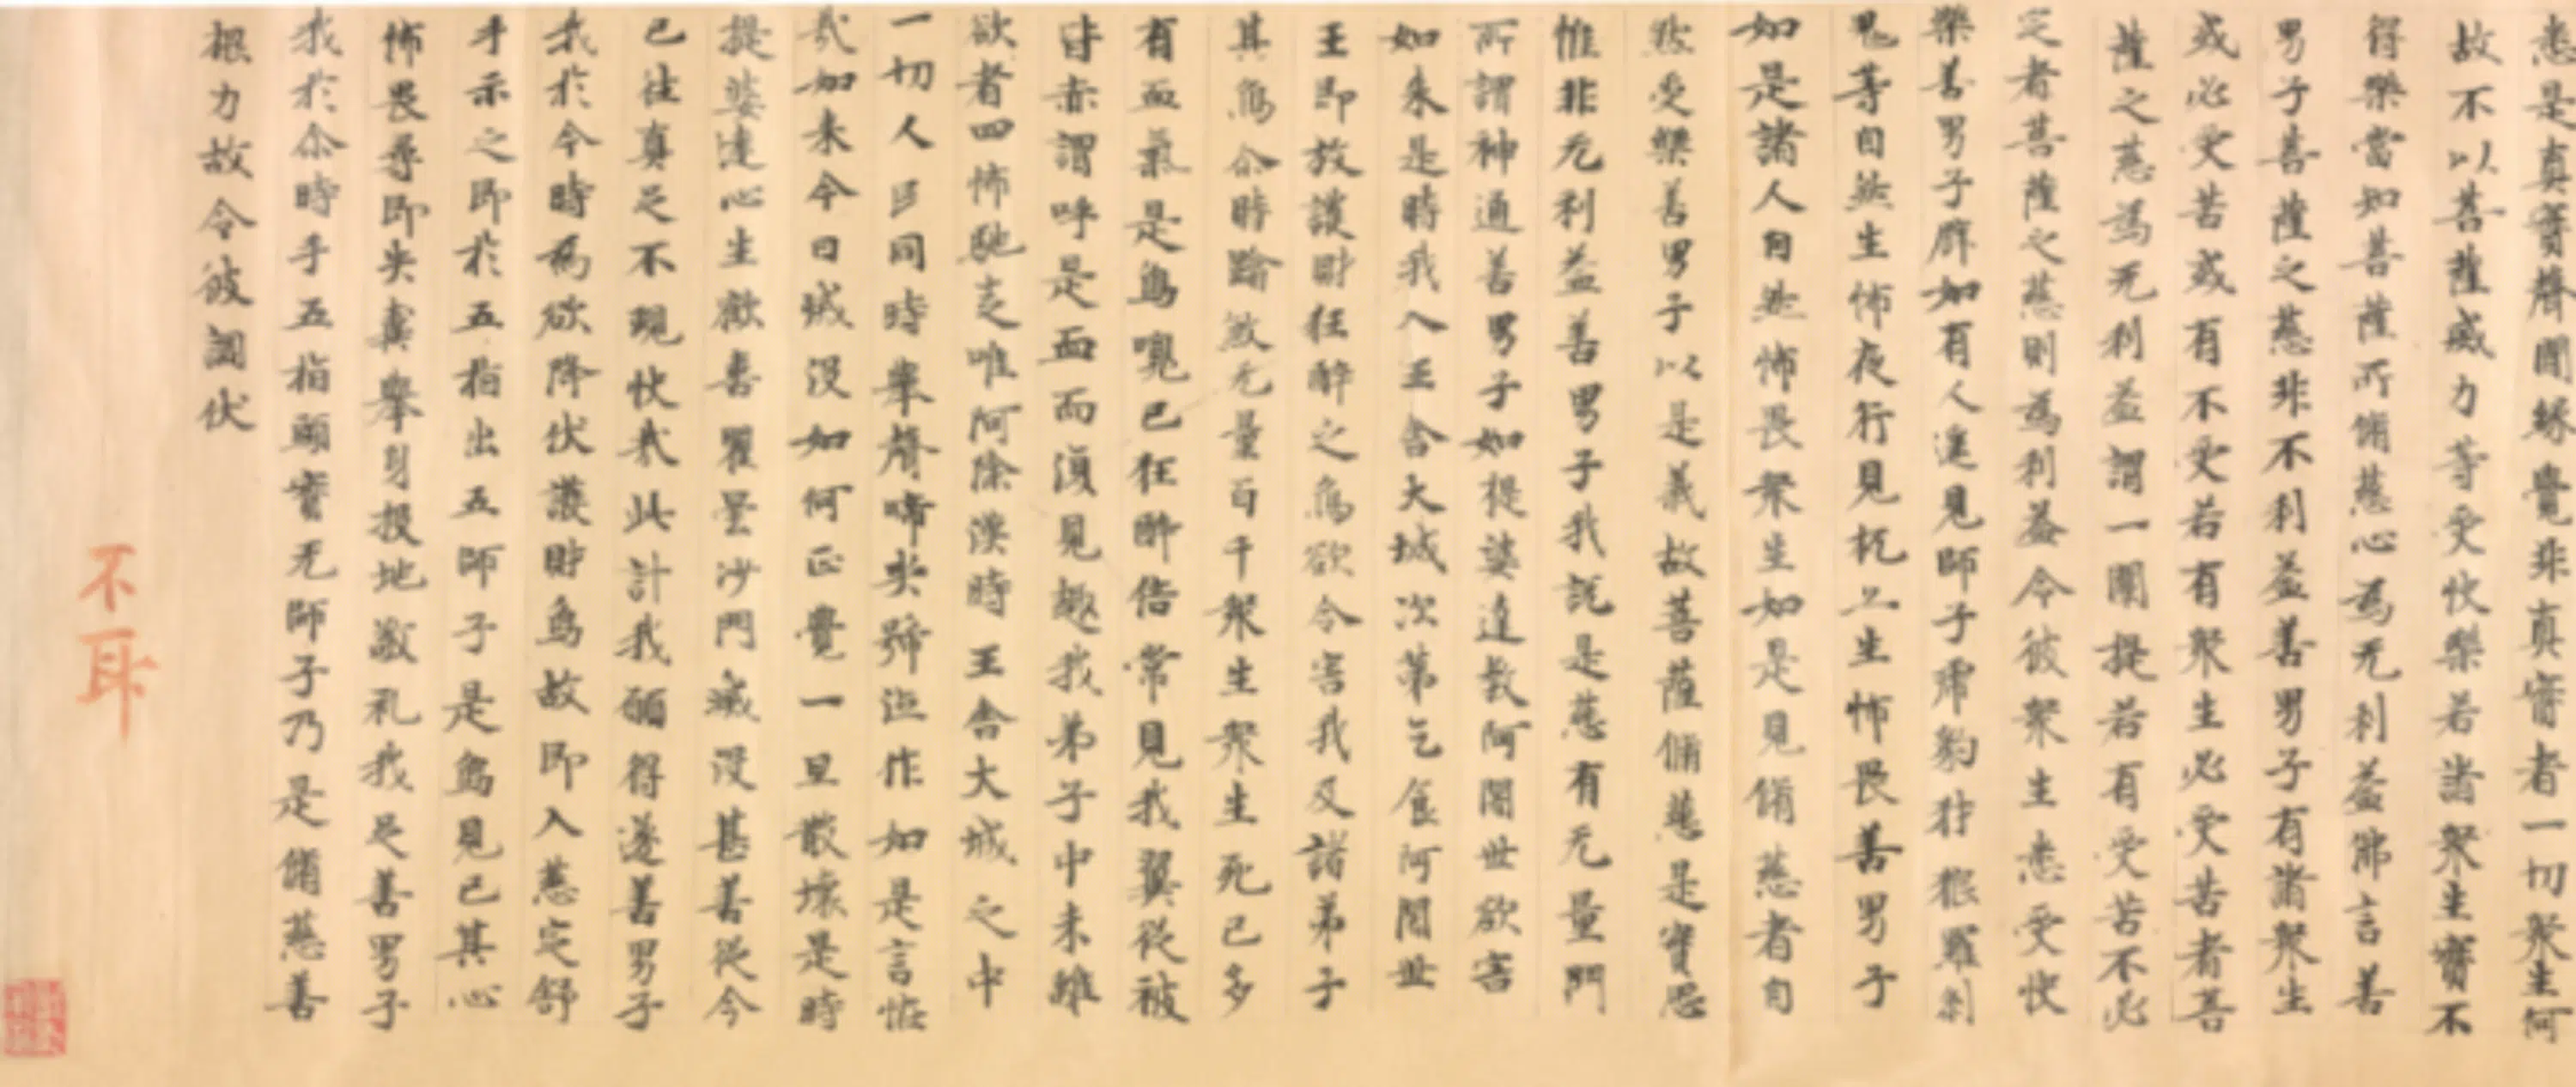 悉是真實聲聞緣覺非真實者一切眾生何
故不以菩薩威力等受快樂若諸眾生實不
得樂當如菩薩所脩慈心為无利益佛言善
男子善薩之慈非不利益善男子有諸眾生
或必受苦或有不受若有眾生必受苦者菩
薩之慈為无利益謂一闡提若有受苦不必
定者菩薩之慈則為利益令彼眾生悉受快
樂善男子辟如有人遙見師子虎豹犲狼羅剎
鬼等自然生怖夜行見杌亦生怖畏善男子
如是諸人自然怖畏眾生如是見脩慈者自
然受樂善男子以是義故菩薩脩慈是實思
惟非无利益善男子我說是慈有无量門
所謂神通善男子如提婆達教阿闍世欲害
如來是時我入王舍大城次第乞食阿闍世
王即放護財狂醉之象欲令害我及諸弟子
其象尒時蹹煞无量百千眾生眾生死已多
有血氣是象嗅已狂醉倍常見我翼從被
甘赤謂呼是血而復見趣我弟子中未離
欲者四怖馳走唯阿除漢時王舍大城之中
一切人民同時舉聲啼哭號泣作如是言恠
哉如來今日城沒如何正覺一旦散壞是時
提婆達心生歡喜瞿曇沙門滅沒甚善從今
已往真是不現快哉此計我願得遂善男子
我於今時為欲降伏護財象故即入慈定舒
手示之即於五指出五師子是象見已其心
怖畏尋即失糞舉身投地敬礼我足善男子
我於尒時手五指頭實无師子乃是脩慈善
根力故令彼調伏
不